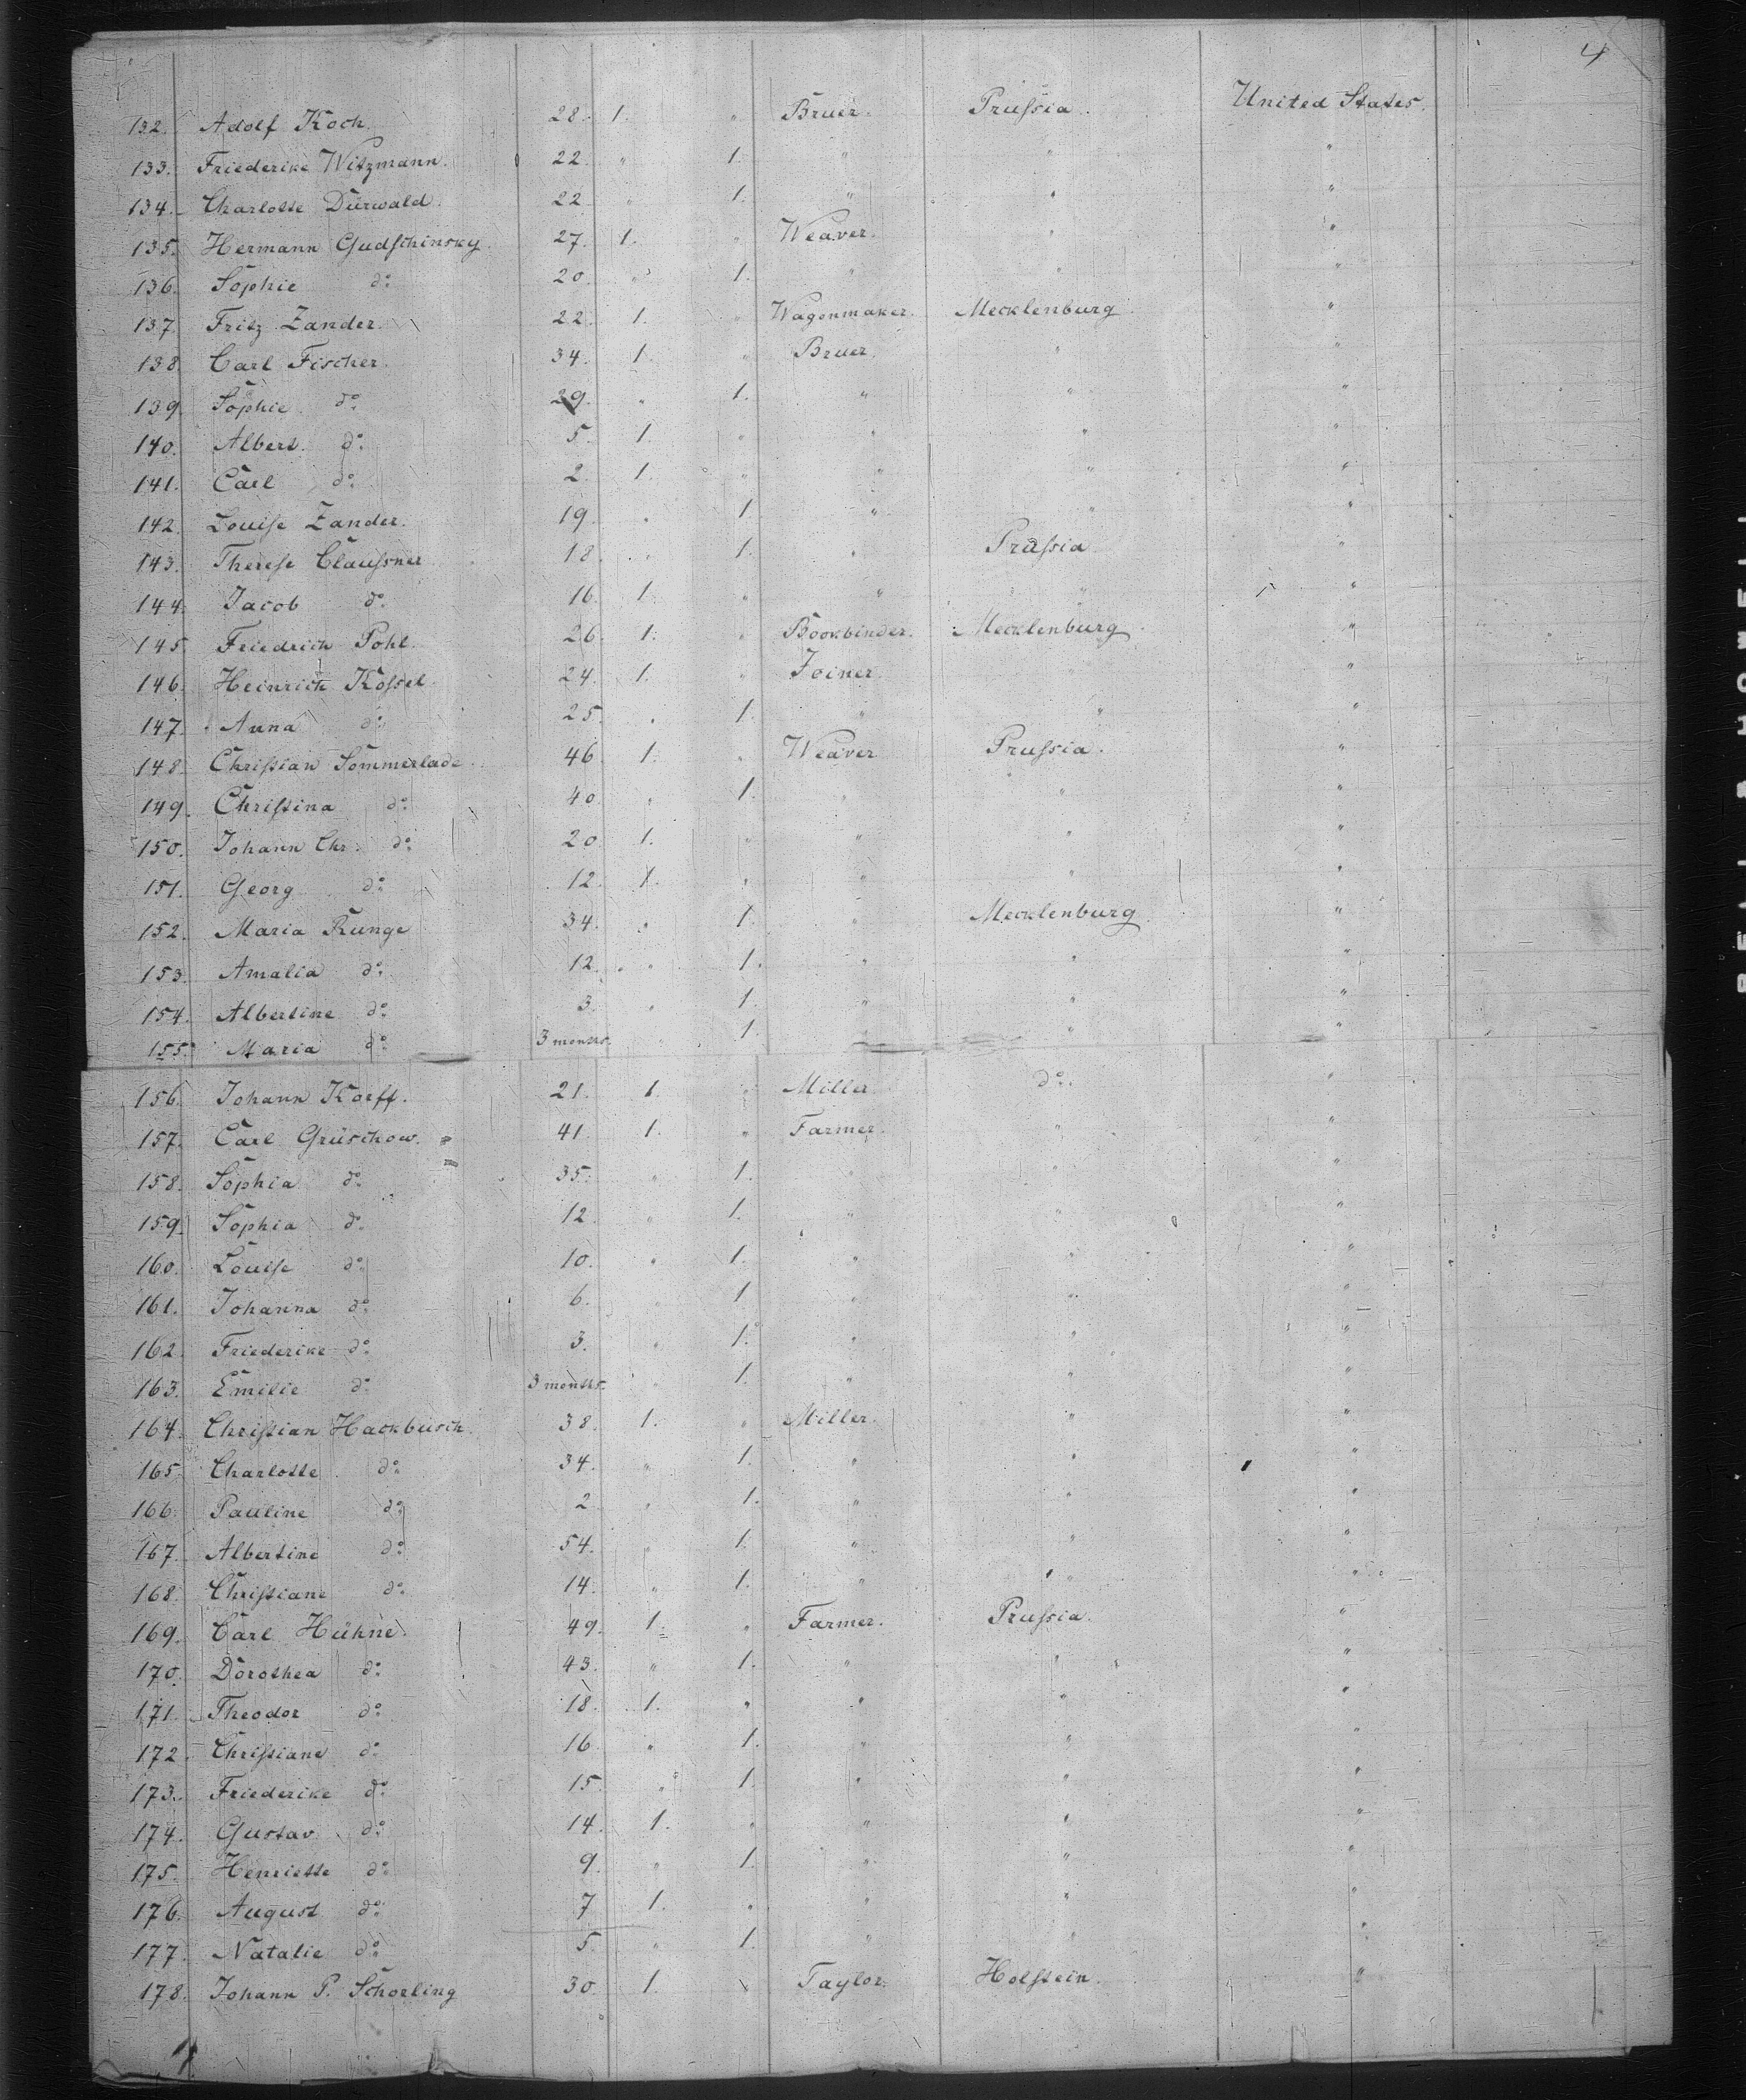 4
132. Adolf Koch. 28. 1. " Bruer. Prussia. United States.
133. Friederike Witzmann. 22. " 1. " " "
134. Charlotte Dürwald. 22 " 1. " " "
135. Hermann Gudschinsky. 27. 1. " Weaver. " "
136. Sophie do. 20. " 1. " " "
137. Fritz Zander. 22. 1. " Wagenmaker. Mecklenburg. "
138. Carl Fischer. 34. 1. " Bruer. " "
139. Sophie do. 29. " 1. " " "
140. Albert do. 5. 1. " " " "
141. Carl do. 2. 1. " " " "
142. Louise Zander. 19. " 1 " " "
143. Therese Claussner 18. " 1. " Prussia "
144. Jacob do. 16. 1. " " " "
145. Friedrich Pohl. 26. 1. " Bookbinder. Mecklenburg. "
146. Heinrich Kossel. 24. 1. " Joiner. " "
147. Anna do. 25. " 1. " " "
148. Christian Sommerlade. 46. 1. " Weaver Prussia. "
149. Christina do. 40. " 1. " " "
150. Johann Chr. do. 20. 1. " " " "
151. Georg do. 12. 1. " " " "
152. Maria Runge 34. " 1. " Mecklenburg. "
153. Amalia do. 12. " 1. " " "
154. Albertine do. 3. " 1. " " "
155. Maria do. 3 months. " 1. " " "
156. Johann Korff. 21. 1. " Miller do. "
157. Carl Grüschow. 41. 1. " Farmer. " "
158. Sophia do. 35. " 1. " " "
159. Sophia do. 12. " 1. " " "
160. Louise do. 10. " 1. " " "
161. Johanna do. 6. " 1 " " "
162. Friederike do. 3. " 1. " " "
163. Emilie do. 3 months. " 1. " " "
164. Christian Hackbusch. 38. 1. " Miller. " "
165. Charlotte do. 34. " 1. " " "
166. Pauline do. 2 " 1. " " "
167. Albertine do. 54. " 1. " " "
168. Christiane do. 14. " 1. " " "
169. Carl Hühne. 49. 1. " Farmer. Prussia. "
170. Dorothea do. 43. " 1. " " "
171. Theodor do. 18. 1. " " " "
172. Christiane do. 16. " 1. " " "
173. Friederike do. 15. " 1. " " "
174. Gustav do. 14. 1. " " " "
175. Henriette do. 9. " 1. " " "
176. August do. 7 1. " " " "
177. Natalie do. 5. " 1. " " "
178. Johann P. Schorling 30. 1. " Taylor. Holstein. "